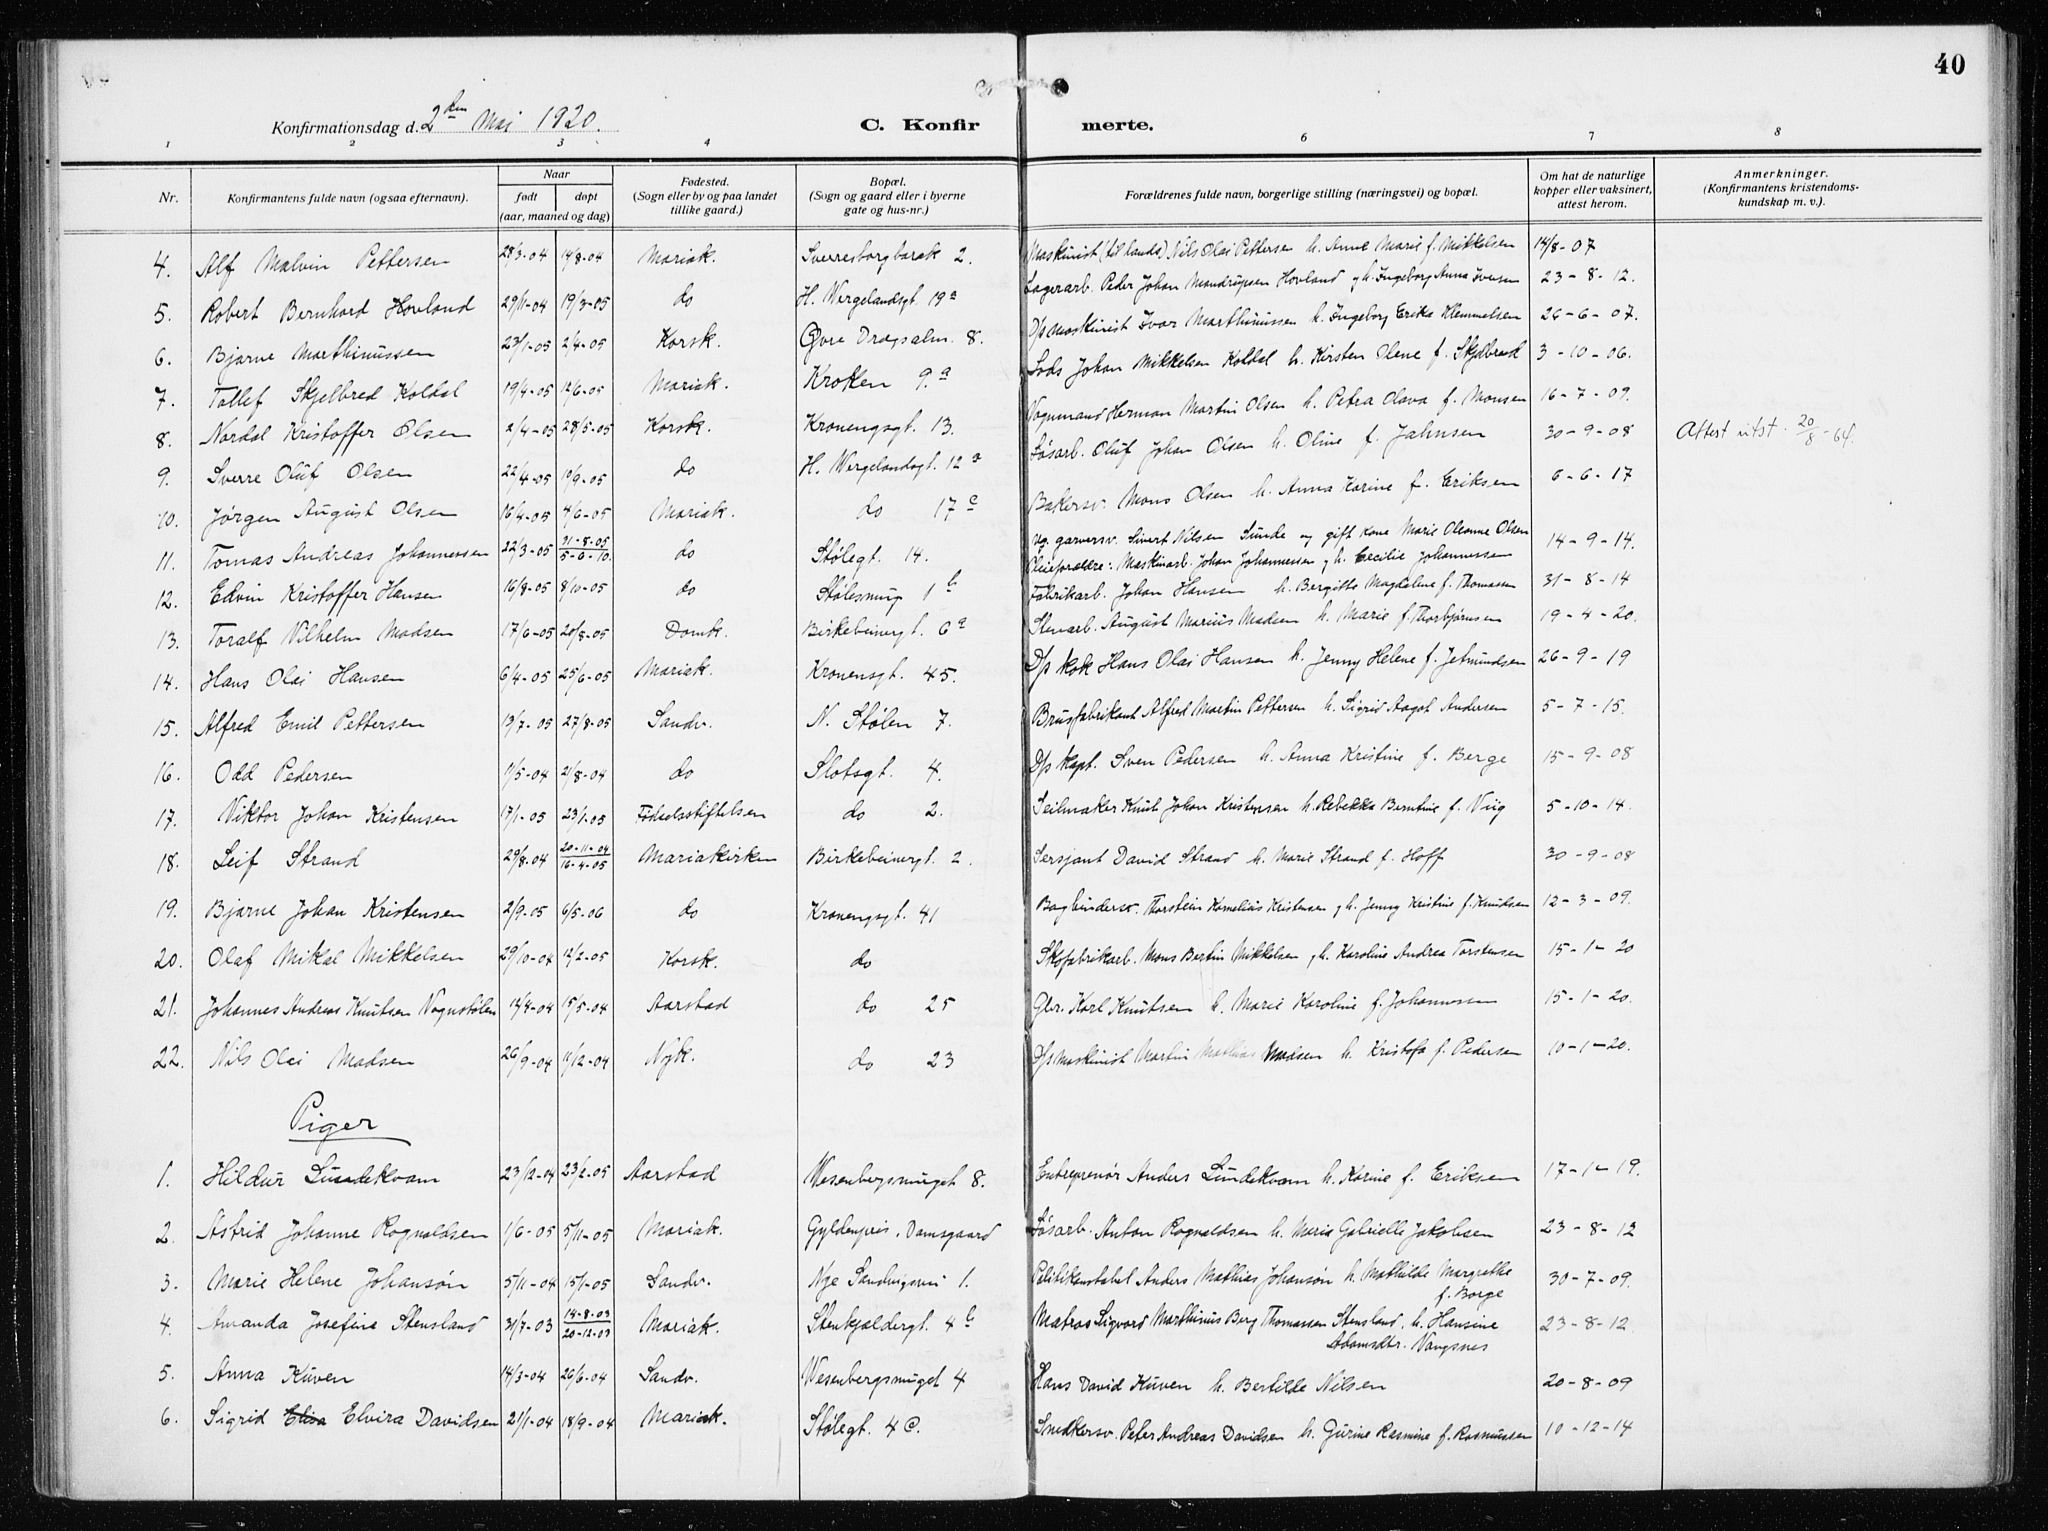 40
Konfirmationsdag d. 2den Mai 1920.
C. Konfirmerte.
1 2 3 4 5 6 7 8
Nr. Konfirmantens fulde navn (ogsaa efternavn). Naar født døpt (aar, maaned og dag) Fødested. (Sogn eller by og paa landet tillike gaard.) Bopæl. (Sogn og gaard eller i byerne gate og hus-nr.) Forældrenes fulde navn, borgerlige stilling (næringsvei) og bopæl. Om hat de naturlige kopper eller vaksinert, attest herom. Anmerkninger. (Konfirmantens kristendomskundskap m. v.).
4. Alf Malvin Pettersen 28/3-04 14/8-04 Mariak. Sverresborgbarak 2. Maskinist (til lands) Nils Olai Pettersen h. Anne Marie f. Mikkelsen 14/8-07
5. Robert Bernhard Hovland 29/11-04 19/3-05 do H. Wergelandsgt. 19a Lagerarb. Peder Johan Mandrupsen Hovland g h. Ingeborg Anna Iversen 23-8-12.
6. Bjarne Marthinussen 23/1-05 2/4-05 Korsk. Øvre Dragsalm. 8. D/s maskinist Ivar Marthinussen h. Ingeborg Erika Klemmetsen 26-6-07.
7. Tollef Skjelbred Koldal 19/4-05 12/6-05 Mariak. Kroken 9.a Lods Johan Mikkelsen Koldal h. Kirsten Olene f. Skjelbred 3-10-06.
8. Nordal Kristoffer Olsen 2/4-05 28/5-05 Korsk. Kronengsgt. 13. Vognmand Herman Martin Olsen h. Petra Olava f. Monsen 16-7-09.
9. Sverre Oluf Olsen 22/4-05 10/9-05 do H. Wergelandsgt. 12a Løsarb. Oluf Johan Olsen h. Oline f. Jahnsen 30-9-08 Attest utst. 20/8-64.
10. Jørgen August Olsen 16/4-05 4/6-05 Mariak. do 17c Bakersv. Mons Olsen h. Anna Karine f. Eriksen 6-6-17
11. Tomas Andreas Johannessen 22/3-05 31-8-05 5-6-10. do Stølegt. 14. Ug. garversv. Sivert Nilsen Sunde og gift kone Marie Oleanne Olsen 14-9-14.
Pleieforældre: Maskinarb. Johan Johannessen g h. Cecilie Johannessen
12. Edvin Kristoffer Hansen 16/8-05 8/10-05 do Stølesmug 1b Fabrikarb. Johan Hansen h. Bergitte Magdalene f. Thomassen 31-8-14
13. Toralf Vilhelm Madsen 17/6-05 20/8-05 Domk. Birkebeinergt. 6a Stenarb. August Marius Madsen h. Marie f. Thorbjørnsen 19-4-20.
14. Hans Olai Hansen 6/4-05 25/6-05 Mariak. Kronensgt. 45. D/s kok Hans Olai Hansen h. Jenny Helene f. Jetmundsen 26-9-19
15. Alfred Emil Pettersen 13/7-05 27/8-05 Sandv. N. Stølen 7. Brusfabrikant Alfred Martin Pettersen h. Sigrid Aagot Andersen 5-7-15.
16. Odd Pedersen 1/5-04 21/8-04 do Slotsgt. 4. D/s kapt. Sven Pedersen h. Anna Kristine f. Berge 15-9-08
17. Viktor Johan Kristensen 17/1-05 23/1-05 Fødselsstiftelsen do 2. Seilmaker Knut Johan Kristensen h. Rebekka Berntine f. Viig 5-10-14.
18. Leif Strand 29/8-04 20-11-04 16-4-05 Mariakirken Birkebeinergt. 2. Sersjant David Strand h. Marie Strand f. Hoff 30-9-08
19. Bjarne Johan Kristensen 2/9-05 6/5-06 do Kronengsgt. 41 Bogbindersv. Thorstein Kornelius Kristensen g h. Jenny Kristine f. Knudsen 12-3-09.
20. Olaf Mikal Mikkelsen 29/10-04 12/2-05 Korsk. do Skofabrikarb. Mons Bertin Mikkelsen g h. Karoline Andrea Torstensen 15-1-20
21. Johannes Andreas Knutsen Vognstølen 14/4-04 15/5-04 Aarstad do 25 Gbr. Karl Knutsen h. Marie Karoline f. Johannessen 15-1-20.
22. Nils Olai Madsen 26/9-04 11/12-04 Nyk. do 23 D/s maskinist Martin Mathias Madsen h. Kristofa f. Pedersen 10-1-20.
Piger
1. Hildur Lundekvam 23/12-04 23/2-05 Aarstad Wesenbergsmuget 8. Entreprenør Anders Lundekvam h. Karine f. Eriksen 17-1-19.
2. Astrid Johanne Rognaldsen 1/6-05 5/11-05 Mariak. Gyldenpris. Damsgaard Løsarb. Anton Rognaldsen h. Marie Gabrielle Jakobsen 23-8-12
3. Marie Helene Johansøn 5/11-04 15/1-05 Sandv. Nye Sandvigsvei 1. Politikonstabel Anders Mathias Johansøn h. Mathilde Margrethe 30-7-09.
f. Borge
4. Amanda Josefine Stensland 31/7-03 14-8-03 20-12-03 Mariak. Stenkjeldergt. 4b Matros Sigvard Marthinius Berg Thomassen Stensland. h. Hansine 23-8-12.
Adamsdtr. Vangsnes
5. Anna Kuven 14/3-04 26/6-04 Sandv. Wesenbergsmuget 4 Hans David Kuven h. Bertilde Nilsen 20-8-09
6. Sigrid Elisa Elvira Davidsen 21/1-04 18/9-04 Mariak. Stølegt. 4 C. Snedkersv. Peter Andreas Davidsen h. Gurine Rasmine f. Rasmussen 10-12-14